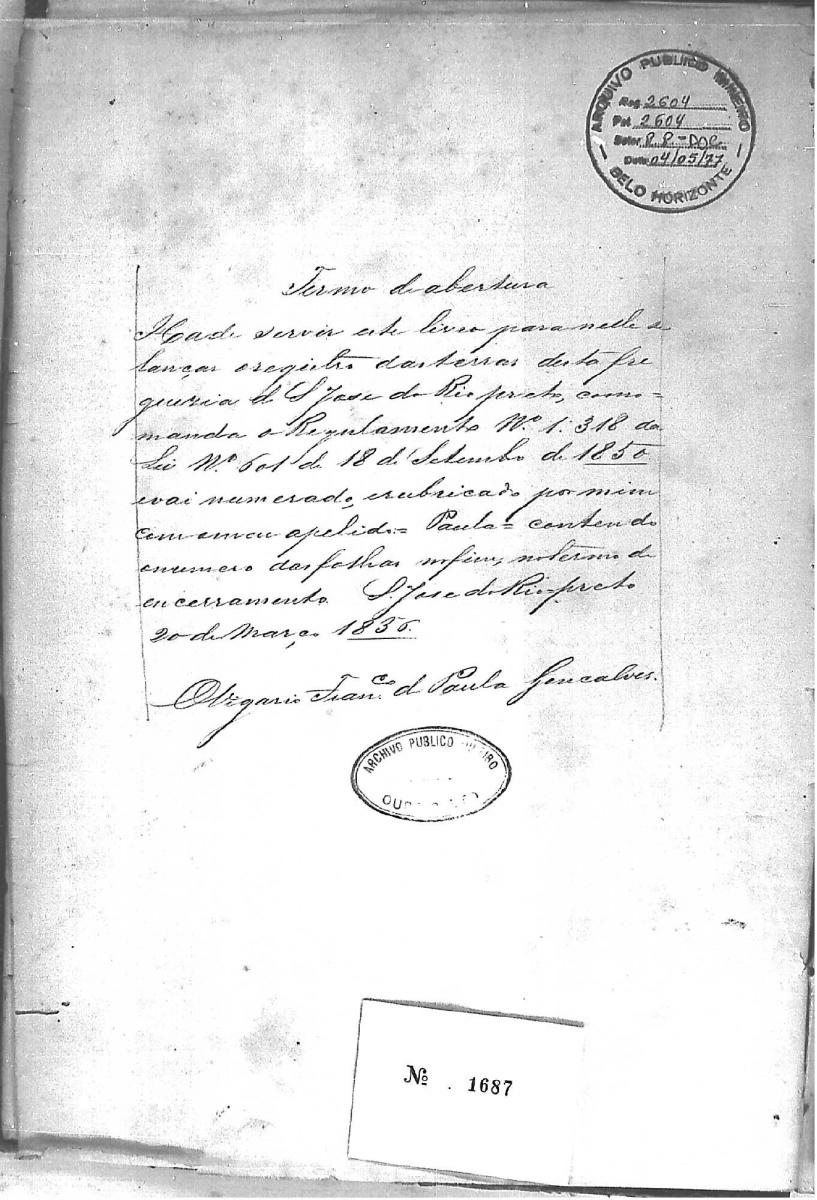 ARQUIVO PUBLICO MINEIRO
Reg. 2604
Pat. 2604
Setor P.P-DDP.
Data 04/05/77
BELO HORIZONTE
Termo de abertura
Hade servir este livro para nelle se
lançar o registro das terras desta fre
guezia de S Jose do Rio preto, como =
manda o Regulamento Nº 1.318 da
Lei Nº 601 de 18 de Setembo de 1850
e vai numerado, e rubricado por mim
com o meu apelido = Paula = contendo
o numero das folhas no fim, no termo de
encerramento. S Jose do Rio-preto
20 de Março 1856.
Olegario Fran.co d Paula Goncalves.
ARCHIVO PUBLICO
Nº . 1687